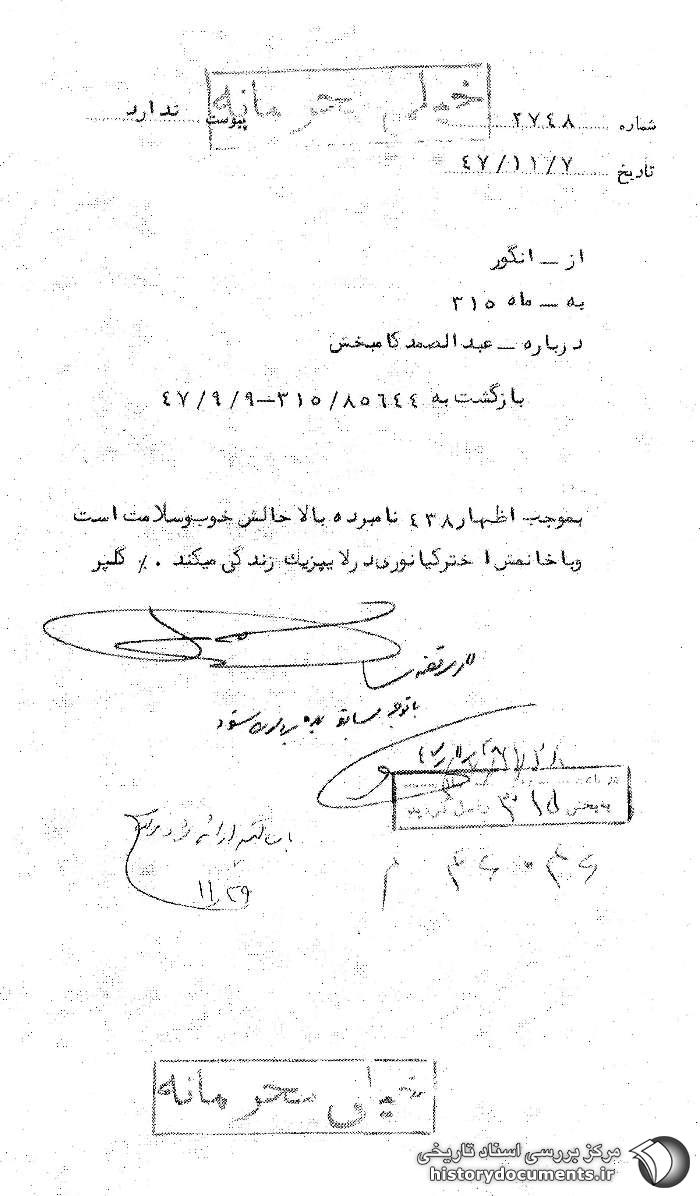 خیلی محرمانه
شماره ۲۷۴۸ پیوست ندارد
تاریخ ۴۷/۱۱/۷
از ــ انگور
به ــ ماه ۳۱۵
درباره ــ عبدالصمد کامبخش
بازگشت به ۳۱۵/۸۵۶۴۴ــ۴۷/۹/۹
بموجب اظهار ۴۳۸ نامبرده بالا حالش خوب وسلامت است
وبا خانمش اختر کیانوری در لایپزیک زندگی میکند ۰٪ گلپر
با توجه بسابقه
به بخش ۳۱۵ واصل گردید
ارائه
۱۱/۲۹
خیلی محرمانه
مرکز بررسی اسناد تاریخی
historydocuments.ir